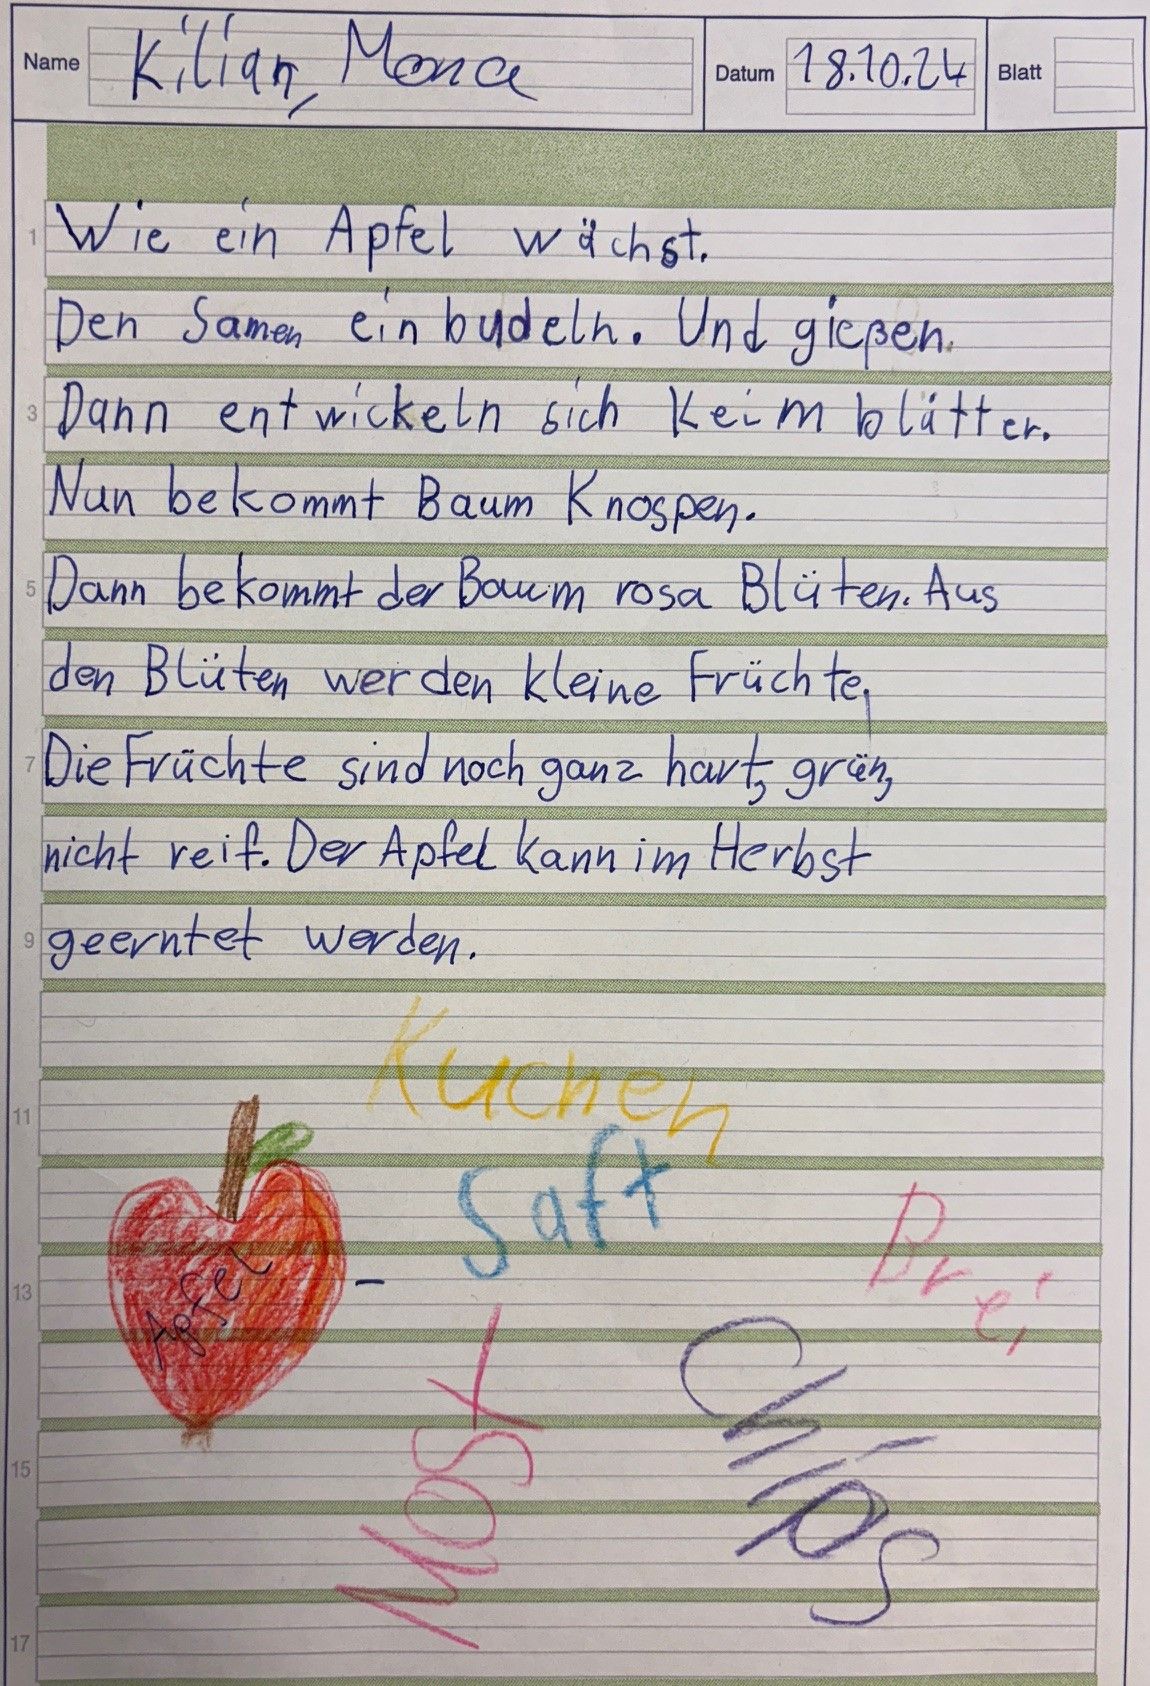 Name Kilian, Mona Datum 18.10.24 Blatt
1 Wie ein Apfel wächst.
Den Samen einbudeln. Und gießen.
3 Dann entwickeln sich Keimblätter.
Nun bekommt Baum Knospen.
5 Dann bekommt der Baum rosa Blüten. Aus
den Blüten werden kleine Früchte,
7 Die Früchte sind noch ganz hart, grün,
nicht reif. Der Apfel kann im Herbst
9 geerntet werden.
Kuchen
11
Saft
Brei
13
Apfel -
Most
Chips
15
17